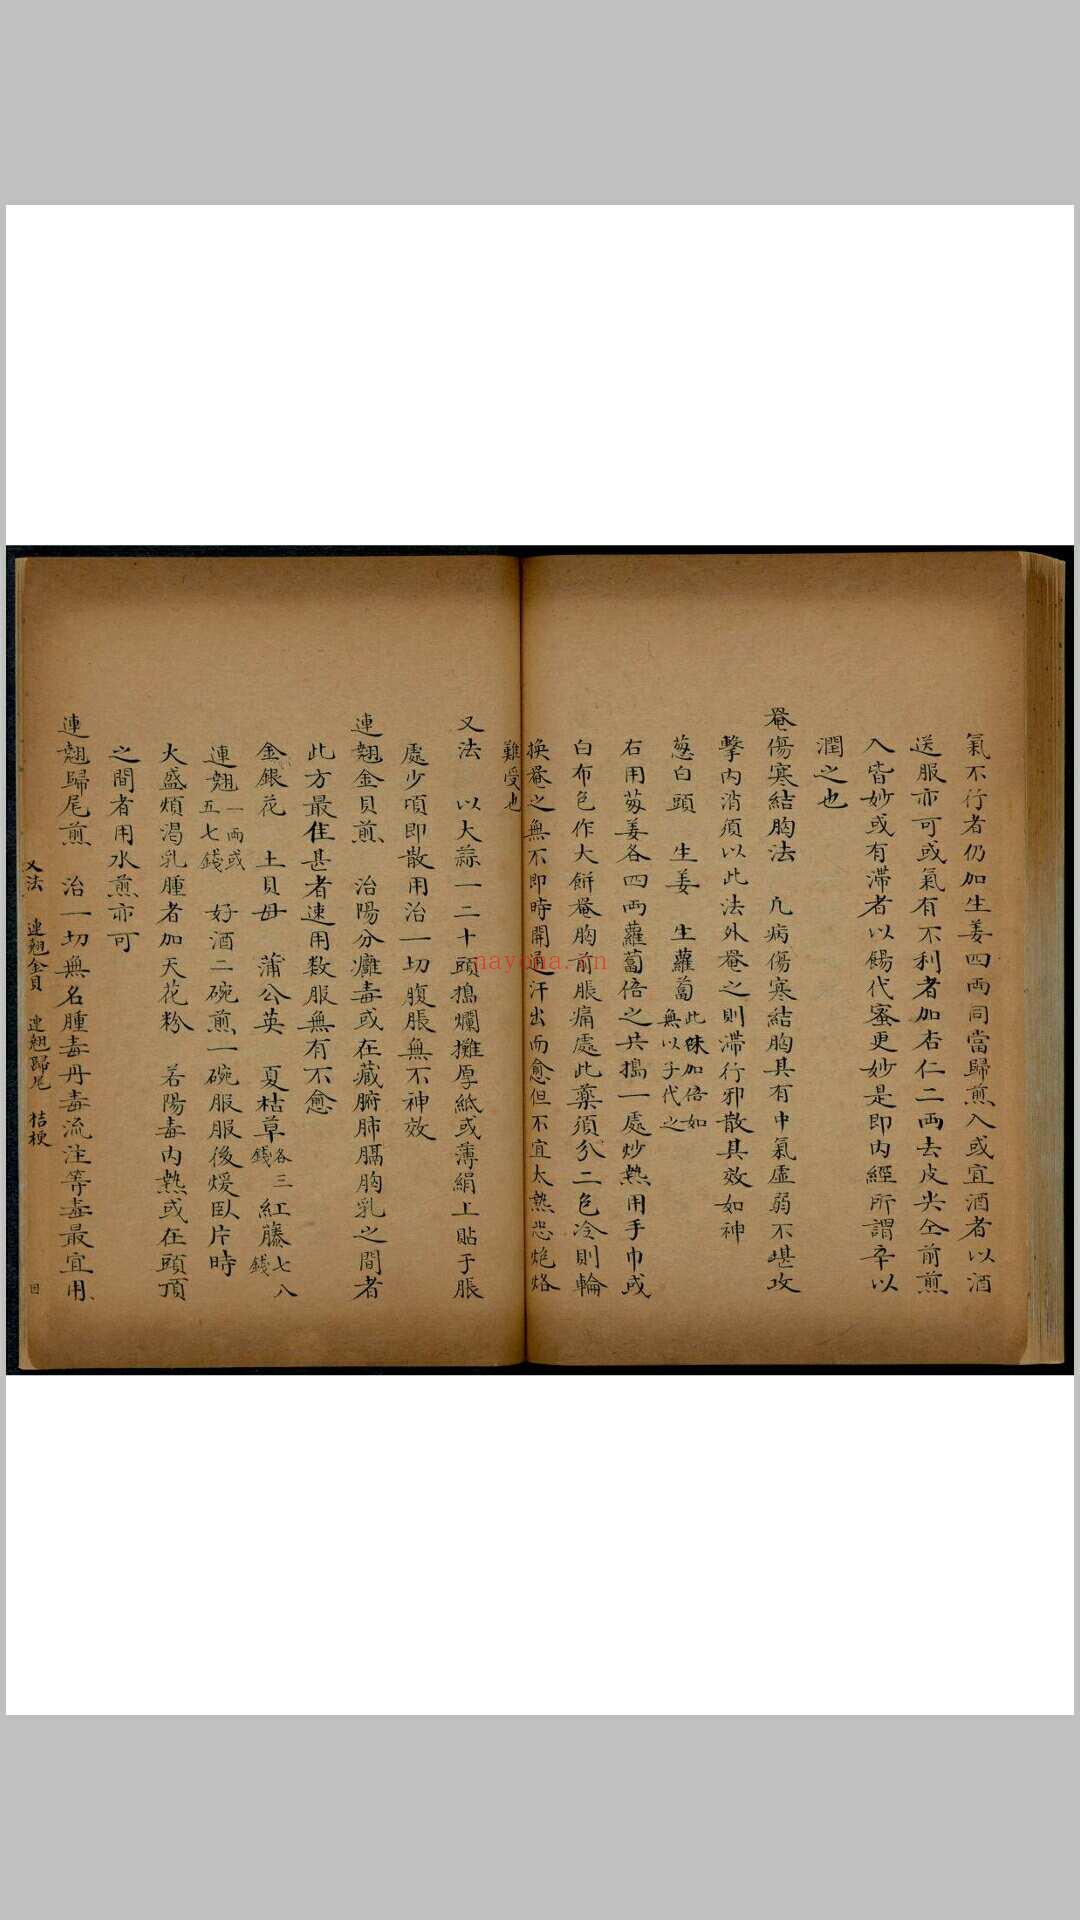 氣不行者仍加生姜四両同當歸煎入或宜酒者以酒
送服亦可或氣有不利者加杏仁二両去皮尖仝前煎
入皆妙或有滞者以餳代蜜更妙是即内經所謂辛以
潤之也
罨傷寒結胸法　凡病傷寒結胸具有中氣虛弱不堪攻
擊内消須以此法外罨之則滞行邪散其效如神
葱白頭　生姜　生蘿蔔 此味加倍如
無以子代之
右用葱姜各四両蘿蔔倍之共搗一處炒熱用手巾或
白布包作大餅罨胸前脹痛處此藥須分二包冷則輪
換罨之無不即時開通汗出而愈但不宜太熱恐炮烙
難受也
又法　以大蒜一二十頭搗爛攤厚紙或薄絹上貼于脹
處少項即散用治一切腹脹無不神效
連翹金貝煎　治陽分癰毒或在藏腑肺膈胸乳之間者
此方最佳甚者速用数服無有不愈
金銀花　土貝母　蒲公英　夏枯草 各三
錢 紅藤 七八
錢
連翹 一両或
五七錢　好酒二碗煎一碗服服後煖臥片時
火盛煩渴乳腫者加天花粉　若陽毒内熱或在頭頂
之間者用水煎亦可
連翹歸尾煎　治一切無名腫毒丹毒流注等毒最宜用
又法　連翹金貝　連翹歸尾　桔梗　四
nayona.cn